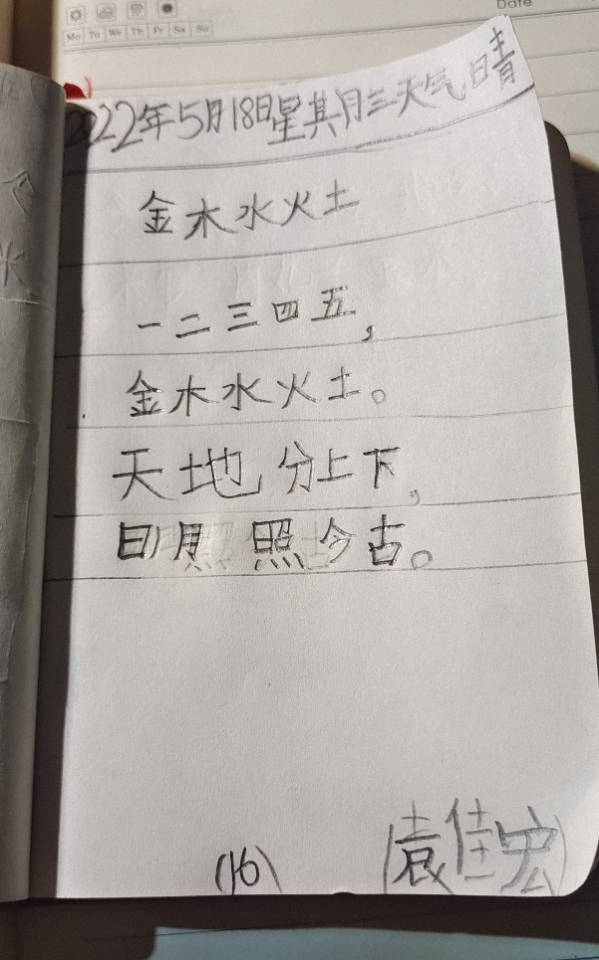 Date
Mo Tu We Th Fr Sa Su
2022年5月18日星期三天气晴
金木水火土
一二三四五，
金木水火土。
天地分上下，
日月照今古。
(16) (袁佳宏)